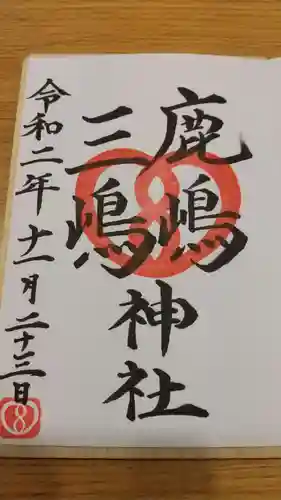 鹿嶋
三嶋
神社
令和二年十一月二十三日